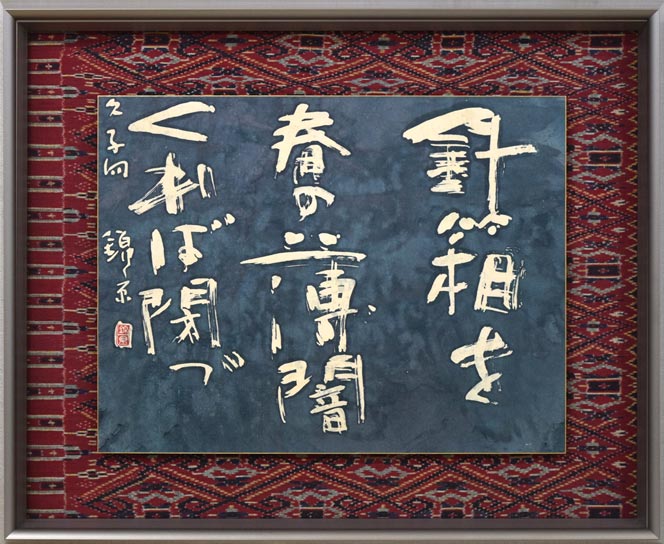 針箱を
春の薄闇
くれば閉づ
久子句